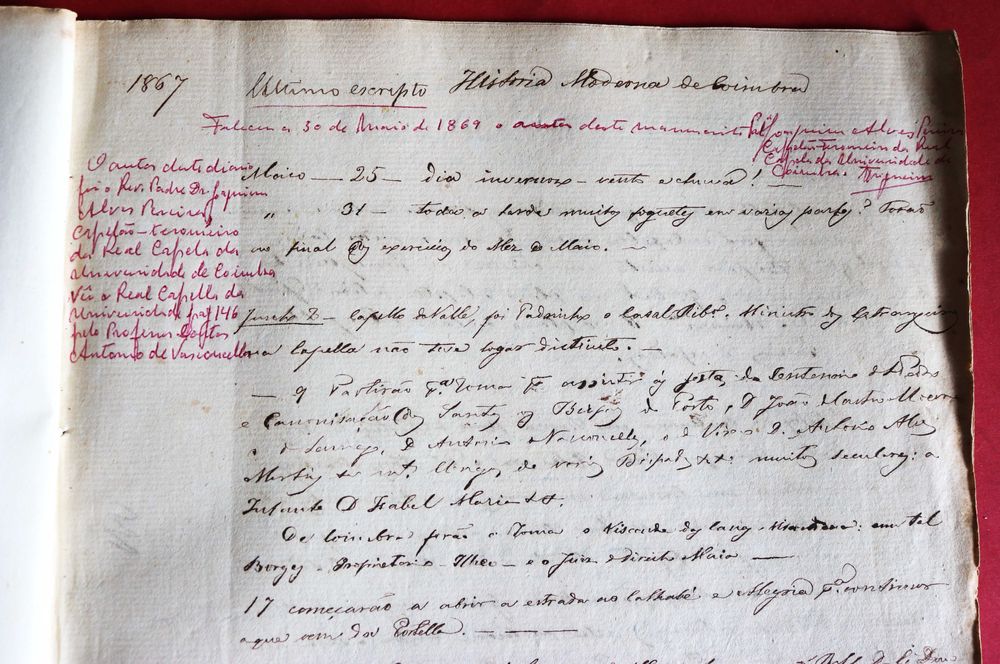 1867
Ultimo escripto Historia Moderna de Coimbra
Faleceu a 30 de Maio de 1869 o autor deste manuscrito Joaquim Alves Pereira
Capelão-tesoureiro da Real
Capela da Universidade de
Coimbra.
O autor deste diario
foi o Rev. Padre Dr. Joaquim
Alves Pereira,
Capelão-tesoureiro
da Real Capela da
Universidade de Coimbra
Vid a Real Capella da
Universidade pag 146
pelo Professor Doutor
Antonio de Vasconcellos
Maio — 25 — dia invernoso — vento e chuva! —
" 31 — toda a tarde muitos foguetes em varias partes? Forão
no final dos exercicios do Mez de Maio. —
Junho 2 — Capello do Valle, foi Padrinho o Casal Ribro. Ministro dos Estrangeiros
na Capella não teve logar distincto. —
— 9 Partirão pa. Roma pa. assistir ás festas do Centenario de S. Pedro
e Canonisação dos Santos os Bispos do Porto, D. João de
o de Lamego, D. Antonio de Vasconcellos, o de Viseu D. Antonio Alves
Martins de varios Bispados muitos seculares: a
Infante D. Isabel Maria
De Coimbra forão a Roma o Visconde das Canas um tal
Borges — Proprietario — Ilheo — e o Juiz de direito Maia —
17 começarão a abrir a estrada ao Calhabé e Alegria pa.
a que vem da Portella. —